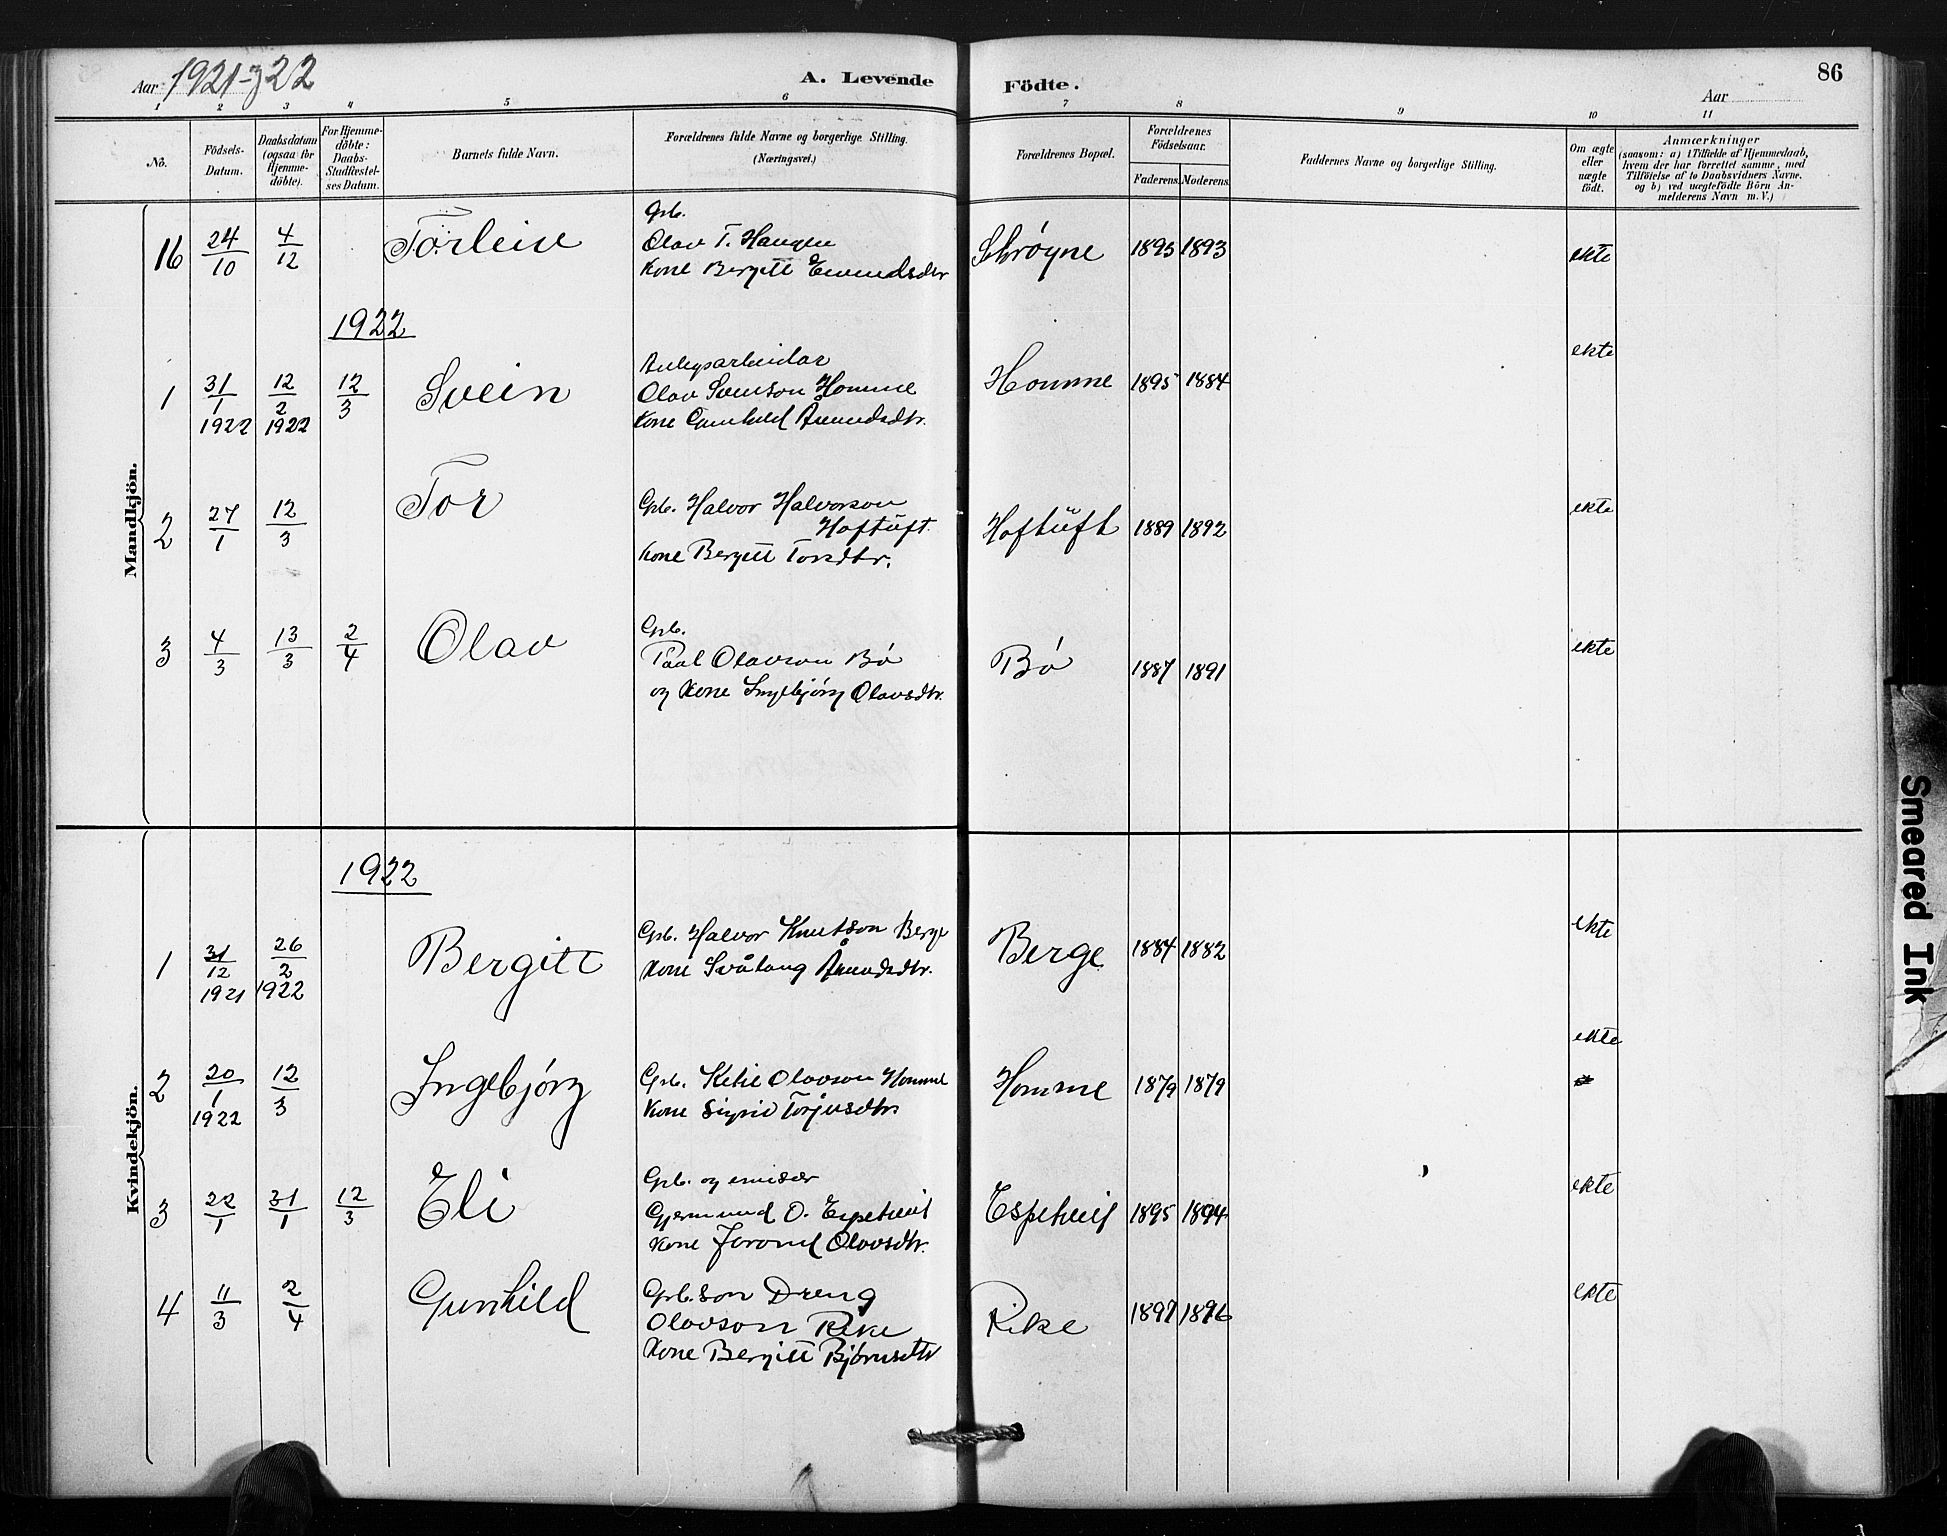 Aar 1921-22
A. Levende Födte.
86
Aar
1 2 3 4 5 6 7 8 9 10 11
No.
Födsels-Datum.
Daabsdatum (ogsaa for Hjemme-döbte).
For Hjemme-döbte: Daabs-Stadfæstel-ses Datum.
Barnets fulde Navn.
Forældrenes fulde Navne og borgerlige Stilling. (Næringsvei.)
Forældrenes Bopæl.
Forældrenes Födselsaar.
Faderens. Moderens.
Faddernes Navne og borgerlige Stilling.
Om ægte eller uægte födt.
Anmærkninger
(saasom: a) i Tilfælde af Hjemmedaab, hvem der har forrettet samme, med Tilföielse af to Daabsvidners Navne, og b) ved uægtefödte Börn An-melderens Navn m. V.)
Mandkjön.
16 24/10 4/12 Torleiv
Grb.
Olav T. Haugen
Kone Bergitt Eivindsdtr
1895 1893 ekte
1922
1 31/1 1922 12/2 1922 12/3 Svein
Olav Homme
Kone Gunhild Åmundsdtr.
Homme 1895 1884 ekte
2 27/1 12/3 Tor
Grb. Halvor Halvorson
Hoftuft
Kone Bergitt Torsdtr.
Hoftuft 1889 1892 ekte
3 4/3 13/3 2/4 Olav
Grb.
Paal Olavson Bø
og Kone Ingebjörg Olavsdtr.
Bø 1887 1891 ekte
Kvindekjön.
1922
1 31/12 1921 26/2 1922 Bergitt
Grb. Halvor Knutson Berge
Kone Svålaug Åmundsdtr.
Berge 1884 1882 ekte
2 20/1 1922 12/3 Ingebjörg
Grb. Ketil Olavson Homme
Kone Sigrid Torjusdtr
Homme 1879 1879 ekte
3 22/1 31/1 12/3 Eli
Grb. og emisær
Gjermund O. Espetveit
Kone Jorond Olavsdtr.
Espetveit 1895 1894 ekte
4 11/3 2/4 Gunhild
Grb.son Dreng
Olavson Rike
Kone Bergitt Björnsdtr
Rike 1897 1896 ekte
Smeared Ink